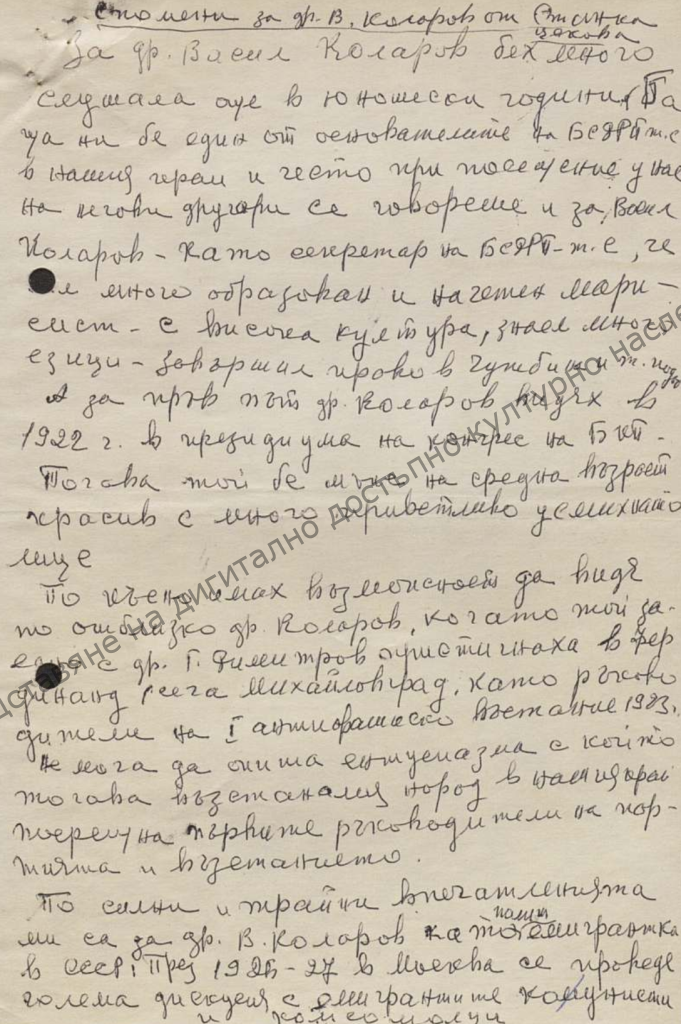 Спомени за др. В. Коларов от
Цекова
За др. Васил Коларов бях много
слушала още в юношески години. Ба
ща ни бе един от основателите на БСДРП т.с
в нашия край и често при посещение у нас
на негови другари се говореше и за Васил
Коларов – като секретар на БСДРП – т.с, че
е много образован и начетен марк-
сист – с висока култура, знаел много
езици – завършил право в чужбина и т. под.
А за пръв път др. Коларов видях в
1922 г. в президиума на конгрес на БКП.
Тогава той бе мъж на средна възраст
красив с много приветливо усмихнато
лице
По късно имах възможност да видя
по отблизко др. Коларов, когато той за-
едно с др. Г. Димитров пристигнаха в Фер
динанд сега Михайловград, като ръково
дители на I антифашистко въстание 1923.
Не мога да опиша ентусиазма с който
тогава възстаналия народ в нашия край
посрещна първите ръководители на пар-
тията и възстанието.
По силни и трайни впечатленията
ми са за др. В. Коларов като полит емигрантка
в СССР. През 1926-27 в Москва се проведе
голема дискусия с емигрантите комунисти
и комсомолци
доставяне на дигитално достъпно културно насле